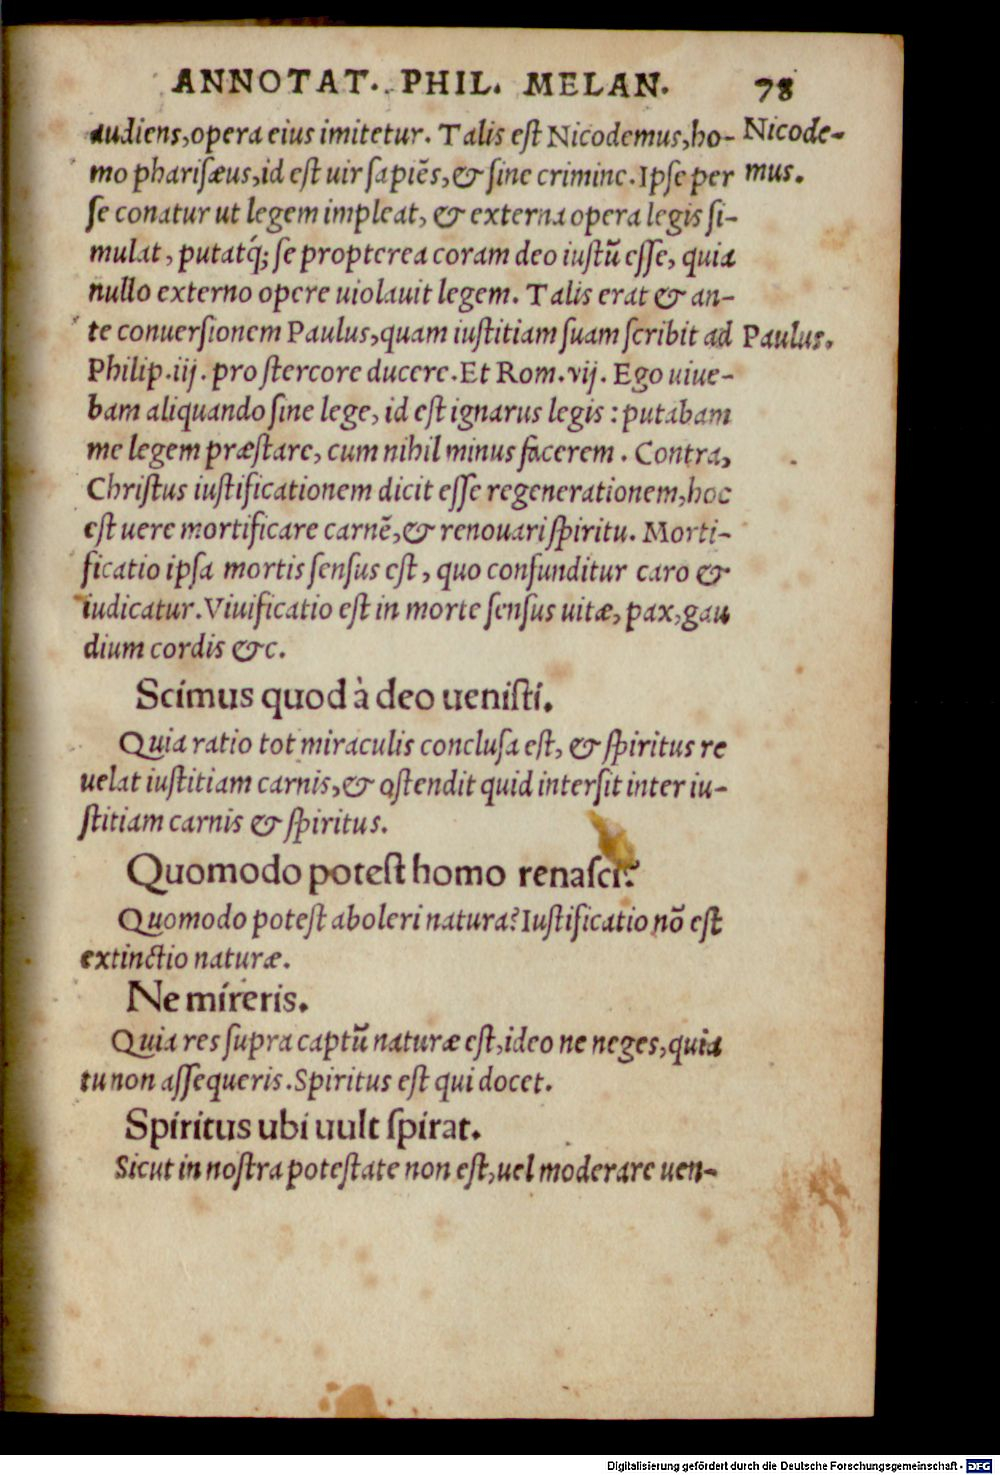 ANNOTAT. PHIL. MELAN. 78
audiens, opera eius imitetur. Talis eſt Nicodemus, ho-
Nicode-
mo phariſæus, id eſt uir ſapiẽs, & ſine crimine. Ipſe per
mus.
ſe conatur ut legem impleat, & externa opera legis ſi-
mulat, putatq́; ſe propterea coram deo iuſtũ eſſe, quia
nullo externo opere uiolauit legem. Talis erat & an-
te conuerſionem Paulus, quam iuſtitiam ſuam ſcribit ad
Paulus.
Philip .iij. pro ſtercore ducere. Et Rom. vij. Ego uiue-
bam aliquando ſine lege, id eſt ignarus legis : putabam
me legem præſtare, cum nihil minus facerem . Contra,
Chriſtus iuſtificationem dicit eſſe regenerationem, hoc
eſt uere mortificare carnẽ, & renouari ſpiritu. Morti-
ficatio ipſa mortis ſenſus eſt, quo confunditur caro &
iudicatur. Viuificatio eſt in morte ſenſus uitæ, pax, gau
dium cordis &c.
Scimus quod à deo ueniſti.
Quia ratio tot miraculis concluſa eſt, & ſpiritus re
uelat iuſtitiam carnis, & oſtendit quid interſit inter iu-
ſtitiam carnis & ſpiritus.
Quomodo poteſt homo renaſci?
Quomodo poteſt aboleri natura? Iuſtificatio nõ eſt
extinctio naturæ.
Ne mireris.
Quia res ſupra captũ naturæ eſt, ideo ne neges, quia
tu non aſſequeris. Spiritus eſt qui docet.
Spiritus ubi uult ſpirat.
Sicut in noſtra poteſtate non eſt, uel moderare uen-
Digitalisierung gefördert durch die Deutsche Forschungsgemeinschaft - DFG